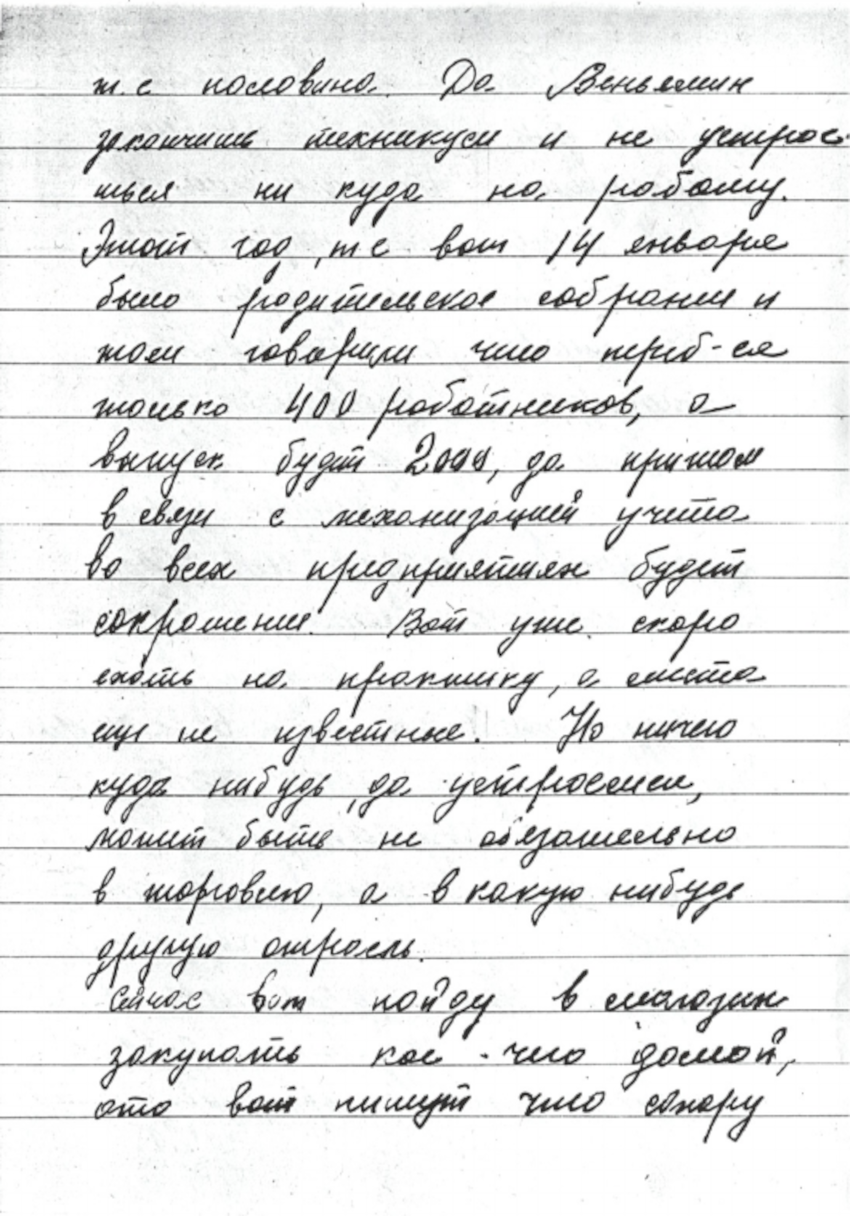 т.е половина. Да Веньямин
закончишь техникум и не устрое-
шься ни куда на работу.
Этот год, т е вот 14 января
было родительское собрание и
там говорили что треб-ся
только 400 работников, а
выпуск будет 2000, да притом
в связи с механизацией учета
во всех предприятиях будет
сокрошение. Вот уже скоро
ехать на практику, а места
еще не известные. Но ничего
куда нибудь, да устроемся,
может быть не обязательно
в торговлю, а в какую нибудь
другую отросль.
Сейчас вот пойду в магазин
закупать кое-чего домой,
ато вот пишут что сахару